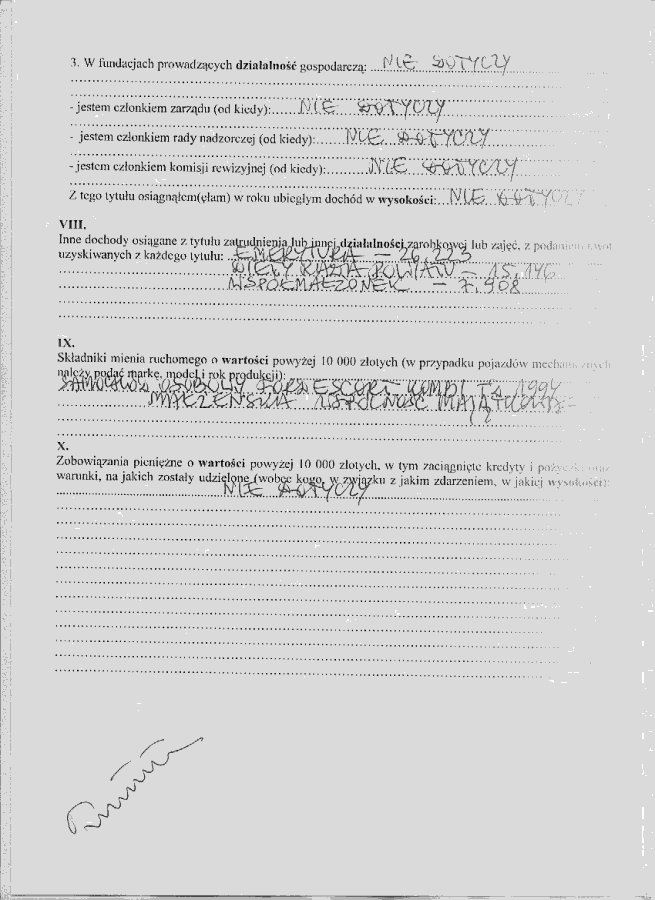 3. W fundacjach prowadzących działalność gospodarczą: NIE DOTYCZY
- jestem członkiem zarządu (od kiedy): NIE DOTYCZY
- jestem członkiem rady nadzorczej (od kiedy): NIE DOTYCZY
- jestem członkiem komisji rewizyjnej (od kiedy): NIE DOTYCZY
Z tego tytułu osiągnąłem(ęłam) w roku ubiegłym dochód w wysokości: NIE DOTYCZY
VIII.
Inne dochody osiągane z tytułu zatrudnienia lub innej działalności zarobkowej lub zajęć, z podaniem kwot
uzyskiwanych z każdego tytułu: EMERYTURA – 26.223
DIETY RADNA POWIATU – 15.146
WSPÓŁMAŁŻONEK – 7.908
IX.
Składniki mienia ruchomego o wartości powyżej 10 000 złotych (w przypadku pojazdów mechanicznych
należy podać markę, model i rok produkcji):
SAMOCHÓD OSOBOWY FORD ESCORT KOMBI 1994
MAŁŻEŃSKA WSPÓLNOŚĆ MAJĄTKOWA
X.
Zobowiązania pieniężne o wartości powyżej 10 000 złotych, w tym zaciągnięte kredyty i pożyczki oraz
warunki, na jakich zostały udzielone (wobec kogo, w związku z jakim zdarzeniem, w jakiej wysokości):
NIE DOTYCZY